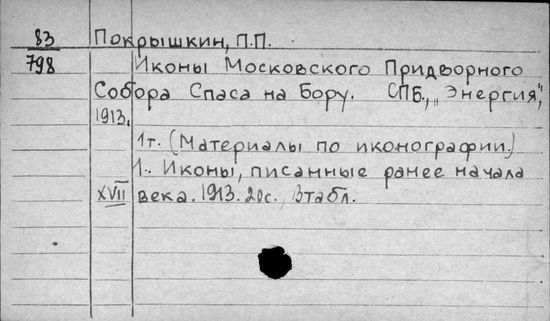 83 Покрышкин, П.П.
798 Иконы Московского Придворного
Собора Спаса на Бору. СПБ., „Энергия",
1913.
1т. (Материалы по иконографии.)
1. Иконы, писанные ранее начала
XVII века. 1913. 20с., 13табл.